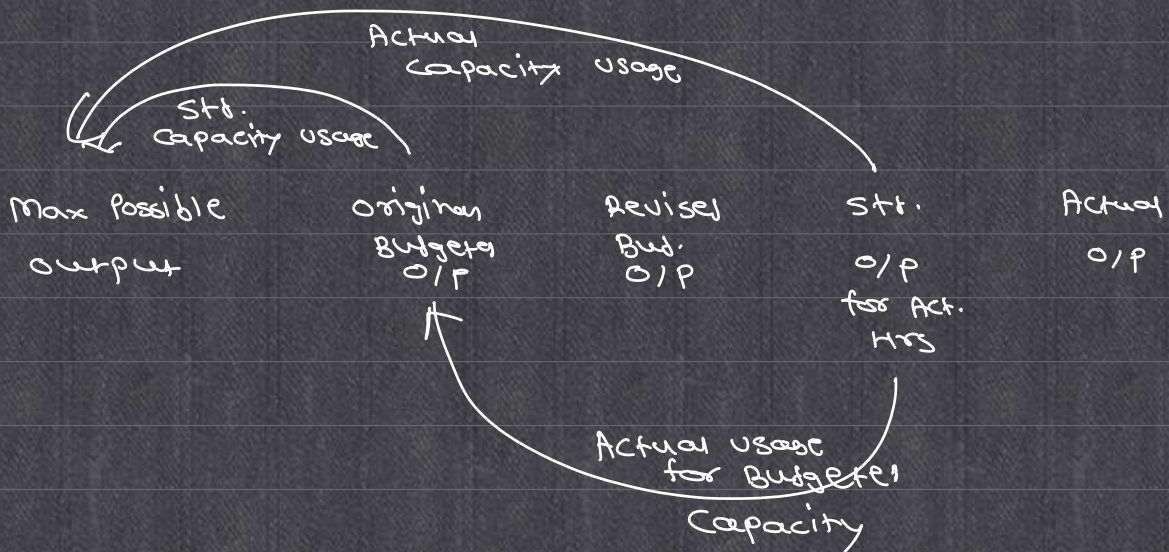 Actual
Capacity usage
Std.
Capacity usage
Max Possible
Output
Original
Budgeted
O/P
Revised
Bud.
O/P
Std.
O/P
for Act.
Hrs
Actual
O/P
Actual usage
for Budgeted
Capacity